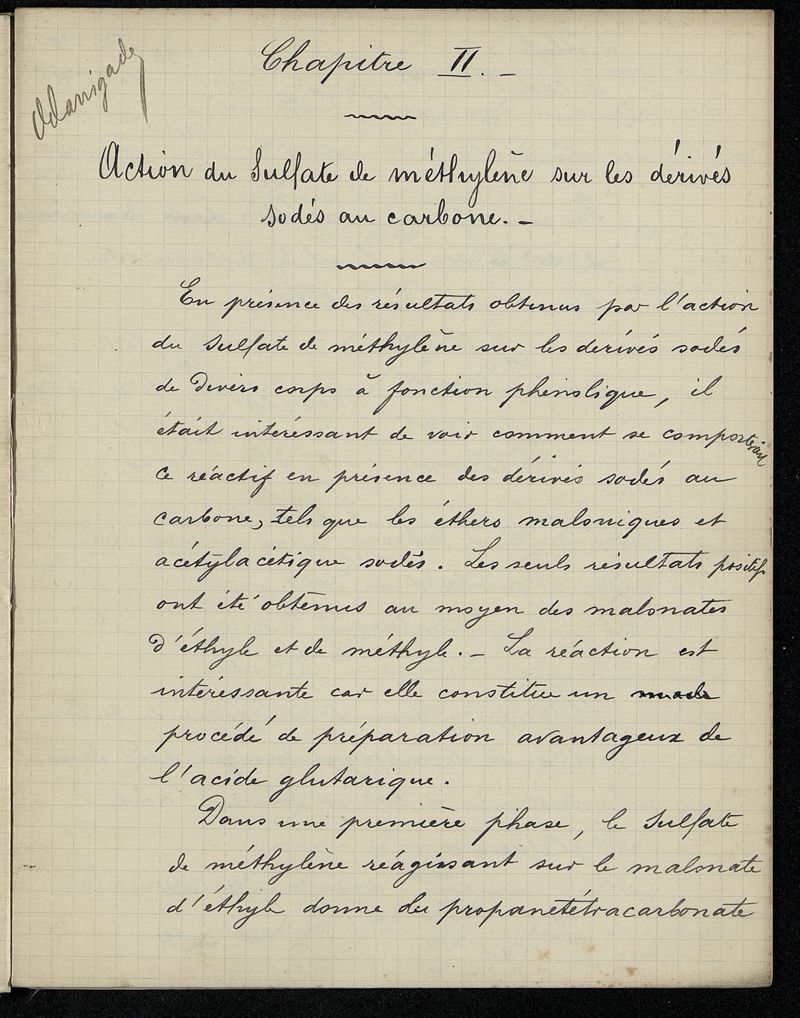 Chapitre II. -
Action du Sulfate de méthylène sur les dérivés
sodés au carbone. -
En présence des résultats obtenus par l'action
du sulfate de méthylène sur les dérivés sodés
de divers corps à fonction phénolique, il
était intéressant de voir comment se comporterait
ce réactif en présence des dérivés sodés au
carbone, tels que les éthers maloniques et
acétylacétique sodés. Les seuls résultats positifs
ont été obtenus au moyen des malonates
d'éthyle et de méthyle. - La réaction est
intéressante car elle constitue un
procédé de préparation avantageux de
l'acide glutarique.
Dans une première phase, le Sulfate
de méthylène réagissant sur le malonate
d'éthyle donne du propanetétracarbonate